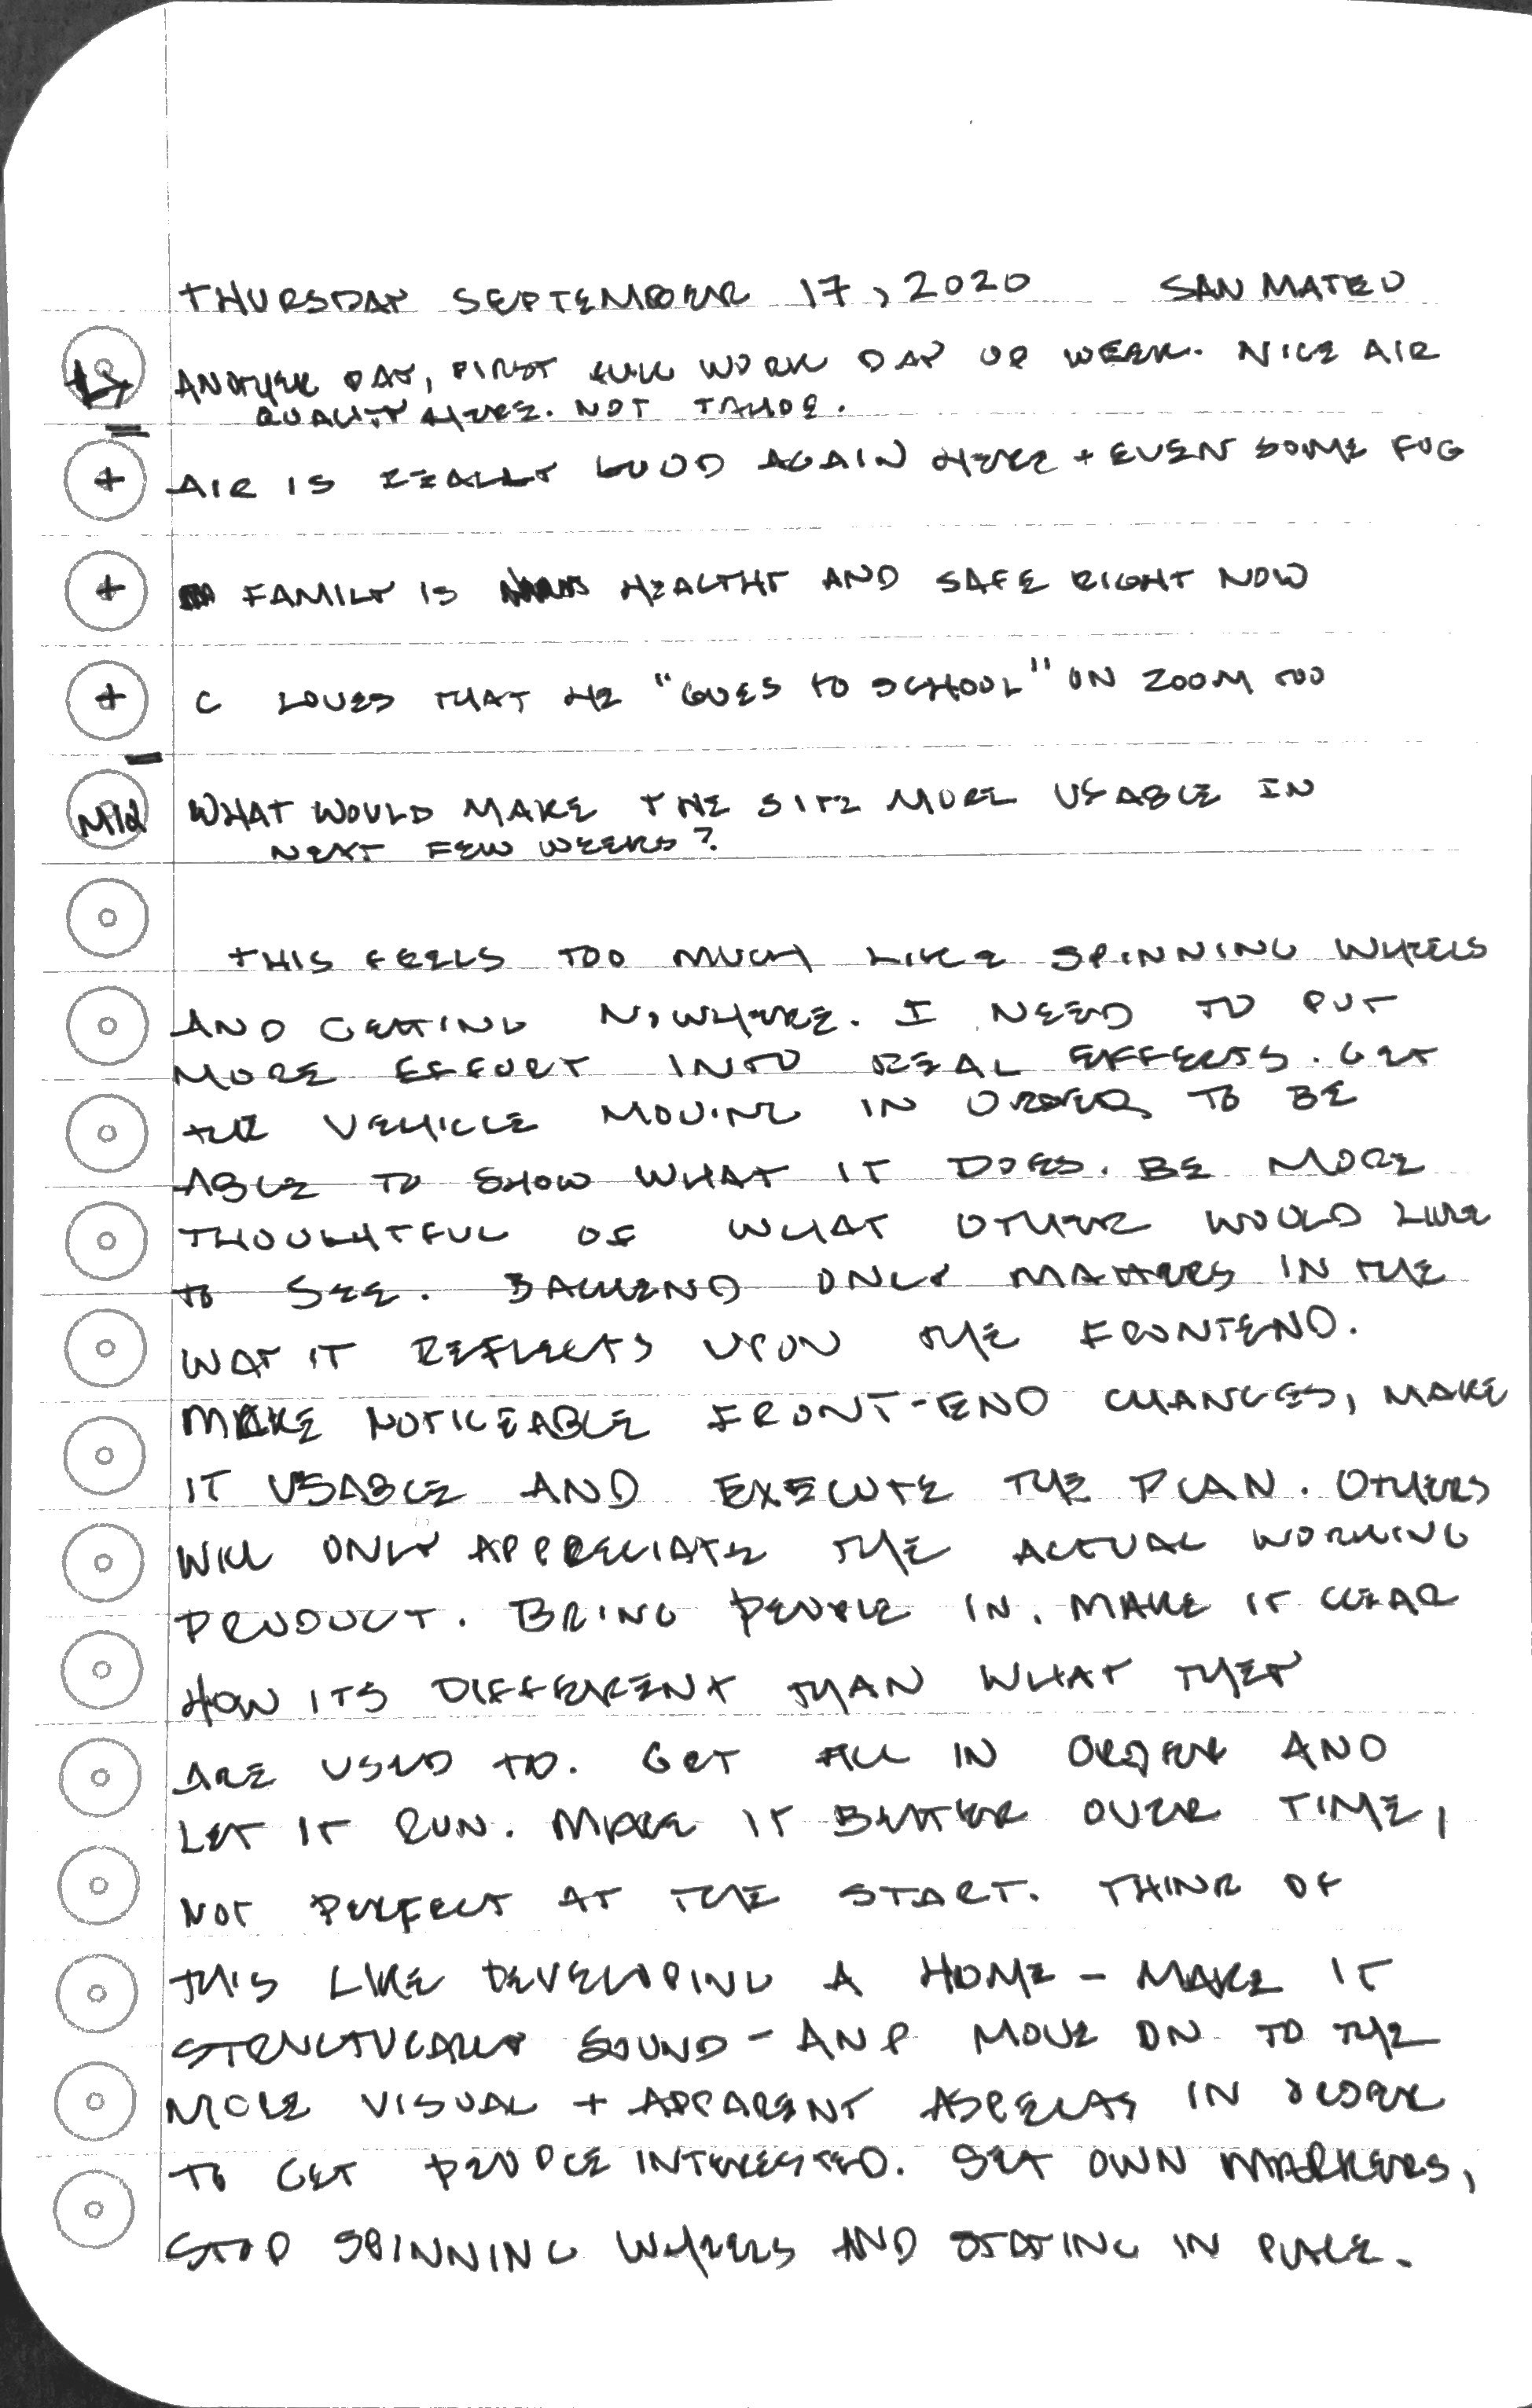 THURSDAY SEPTEMBER 17, 2020 SAN MATEO
17 ANOTHER DAY, FIRST FULL WORK DAY OF WEEK. NICE AIR
QUALITY HERE. NOT TAHOE.
+ AIR IS REALLY GOOD AGAIN HERE + EVEN SOME FOG
+ FAMILY IS HEALTHY AND SAFE RIGHT NOW
+ C LOVES THAT HE "GOES TO SCHOOL" ON ZOOM TOO
WHAT WOULD MAKE THE SITE MORE USABLE IN
NEXT FEW WEEKS?
THIS FEELS TOO MUCH LIKE SPINNING WHEELS
AND GETTING NOWHERE. I NEED TO PUT
MORE EFFORT INTO REAL EFFECTS. GET
THE VEHICLE MOVING IN ORDER TO BE
ABLE TO SHOW WHAT IT DOES. BE MORE
THOUGHTFUL OF WHAT OTHER WOULD LIKE
TO SEE. BACKEND ONLY MATTERS IN THE
WAY IT REFLECTS UPON THE FRONTEND.
MAKE NOTICEABLE FRONT-END CHANGES, MAKE
IT USABLE AND EXECUTE THE PLAN. OTHERS
WILL ONLY APPRECIATE THE ACTUAL WORKING
PRODUCT. BRING PEOPLE IN. MAKE IT CLEAR
HOW ITS DIFFERENT THAN WHAT THEY
ARE USED TO. GET ALL IN ORDER AND
LET IT RUN. MAKE IT BETTER OVER TIME,
NOT PERFECT AT THE START. THINK OF
THIS LIKE DEVELOPING A HOME - MAKE IT
STRUCTURALLY SOUND - AND MOVE ON TO THE
MORE VISUAL + APPARENT ASPECTS IN ORDER
TO GET PEOPLE INTERESTED. SET OWN MARKERS,
STOP SPINNING WHEELS AND STAYING IN PLACE.